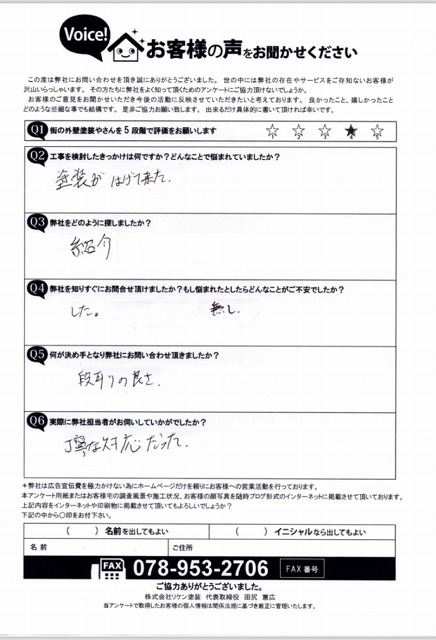 Voice!
お客様の声をお聞かせください
この度は弊社にお問い合わせを頂き誠にありがとうございました。 世の中には弊社の存在やサービスをご存知ないお客様が
沢山いらっしゃいます。 その方たちに弊社をよく知って頂くためのアンケートにご協力頂けないでしょうか。
お客様のご意見をお聞かせいただき今後の活動に反映させていただきたいと考えております。 良かったこと、嬉しかったこと
どのような些細な事でも結構です。 是非ご協力お願い致します。 出来るだけ具体的に書いて頂ければ幸いです。
Q1 街の外壁塗装やさんを5段階で評価をお願いします
1 2 3 4 5
Q2 工事を検討したきっかけは何ですか？どんなことで悩まれていましたか？
塗装が はげて来た.
Q3 弊社をどのように探しましたか？
紹介
Q4 弊社を知りすぐにお問合せ頂けましたか？もし悩まれたとしたらどんなことがご不安でしたか？
した。 無し.
Q5 何が決め手となり弊社にお問い合わせ頂きましたか？
段取りの良さ.
Q6 実際に弊社担当者がお伺いしていかがでしたか？
丁寧な対応だった.
＊弊社は広告宣伝費を極力かけない為にホームページだけを頼りにお客様への営業活動を行っております。
本アンケート用紙またはお客様宅の調査風景や施工状況、お客様の顔写真を随時ブログ形式のインターネットに掲載させて頂いております。
上記内容をインターネットや印刷物に掲載させて頂いてもよろしいでしょうか？
下記の中から〇印をお付下さい。
（ ）名前を出してもよい （ ）イニシャルなら出してもよい
名 前 ご住所
FAX 078-953-2706 FAX 番号
ご協力ありがとうございました。
株式会社リケン塗装 代表取締役 田尻 憲広
当アンケートで取得したお客様の個人情報は関係法規に基づき厳正に管理いたします。